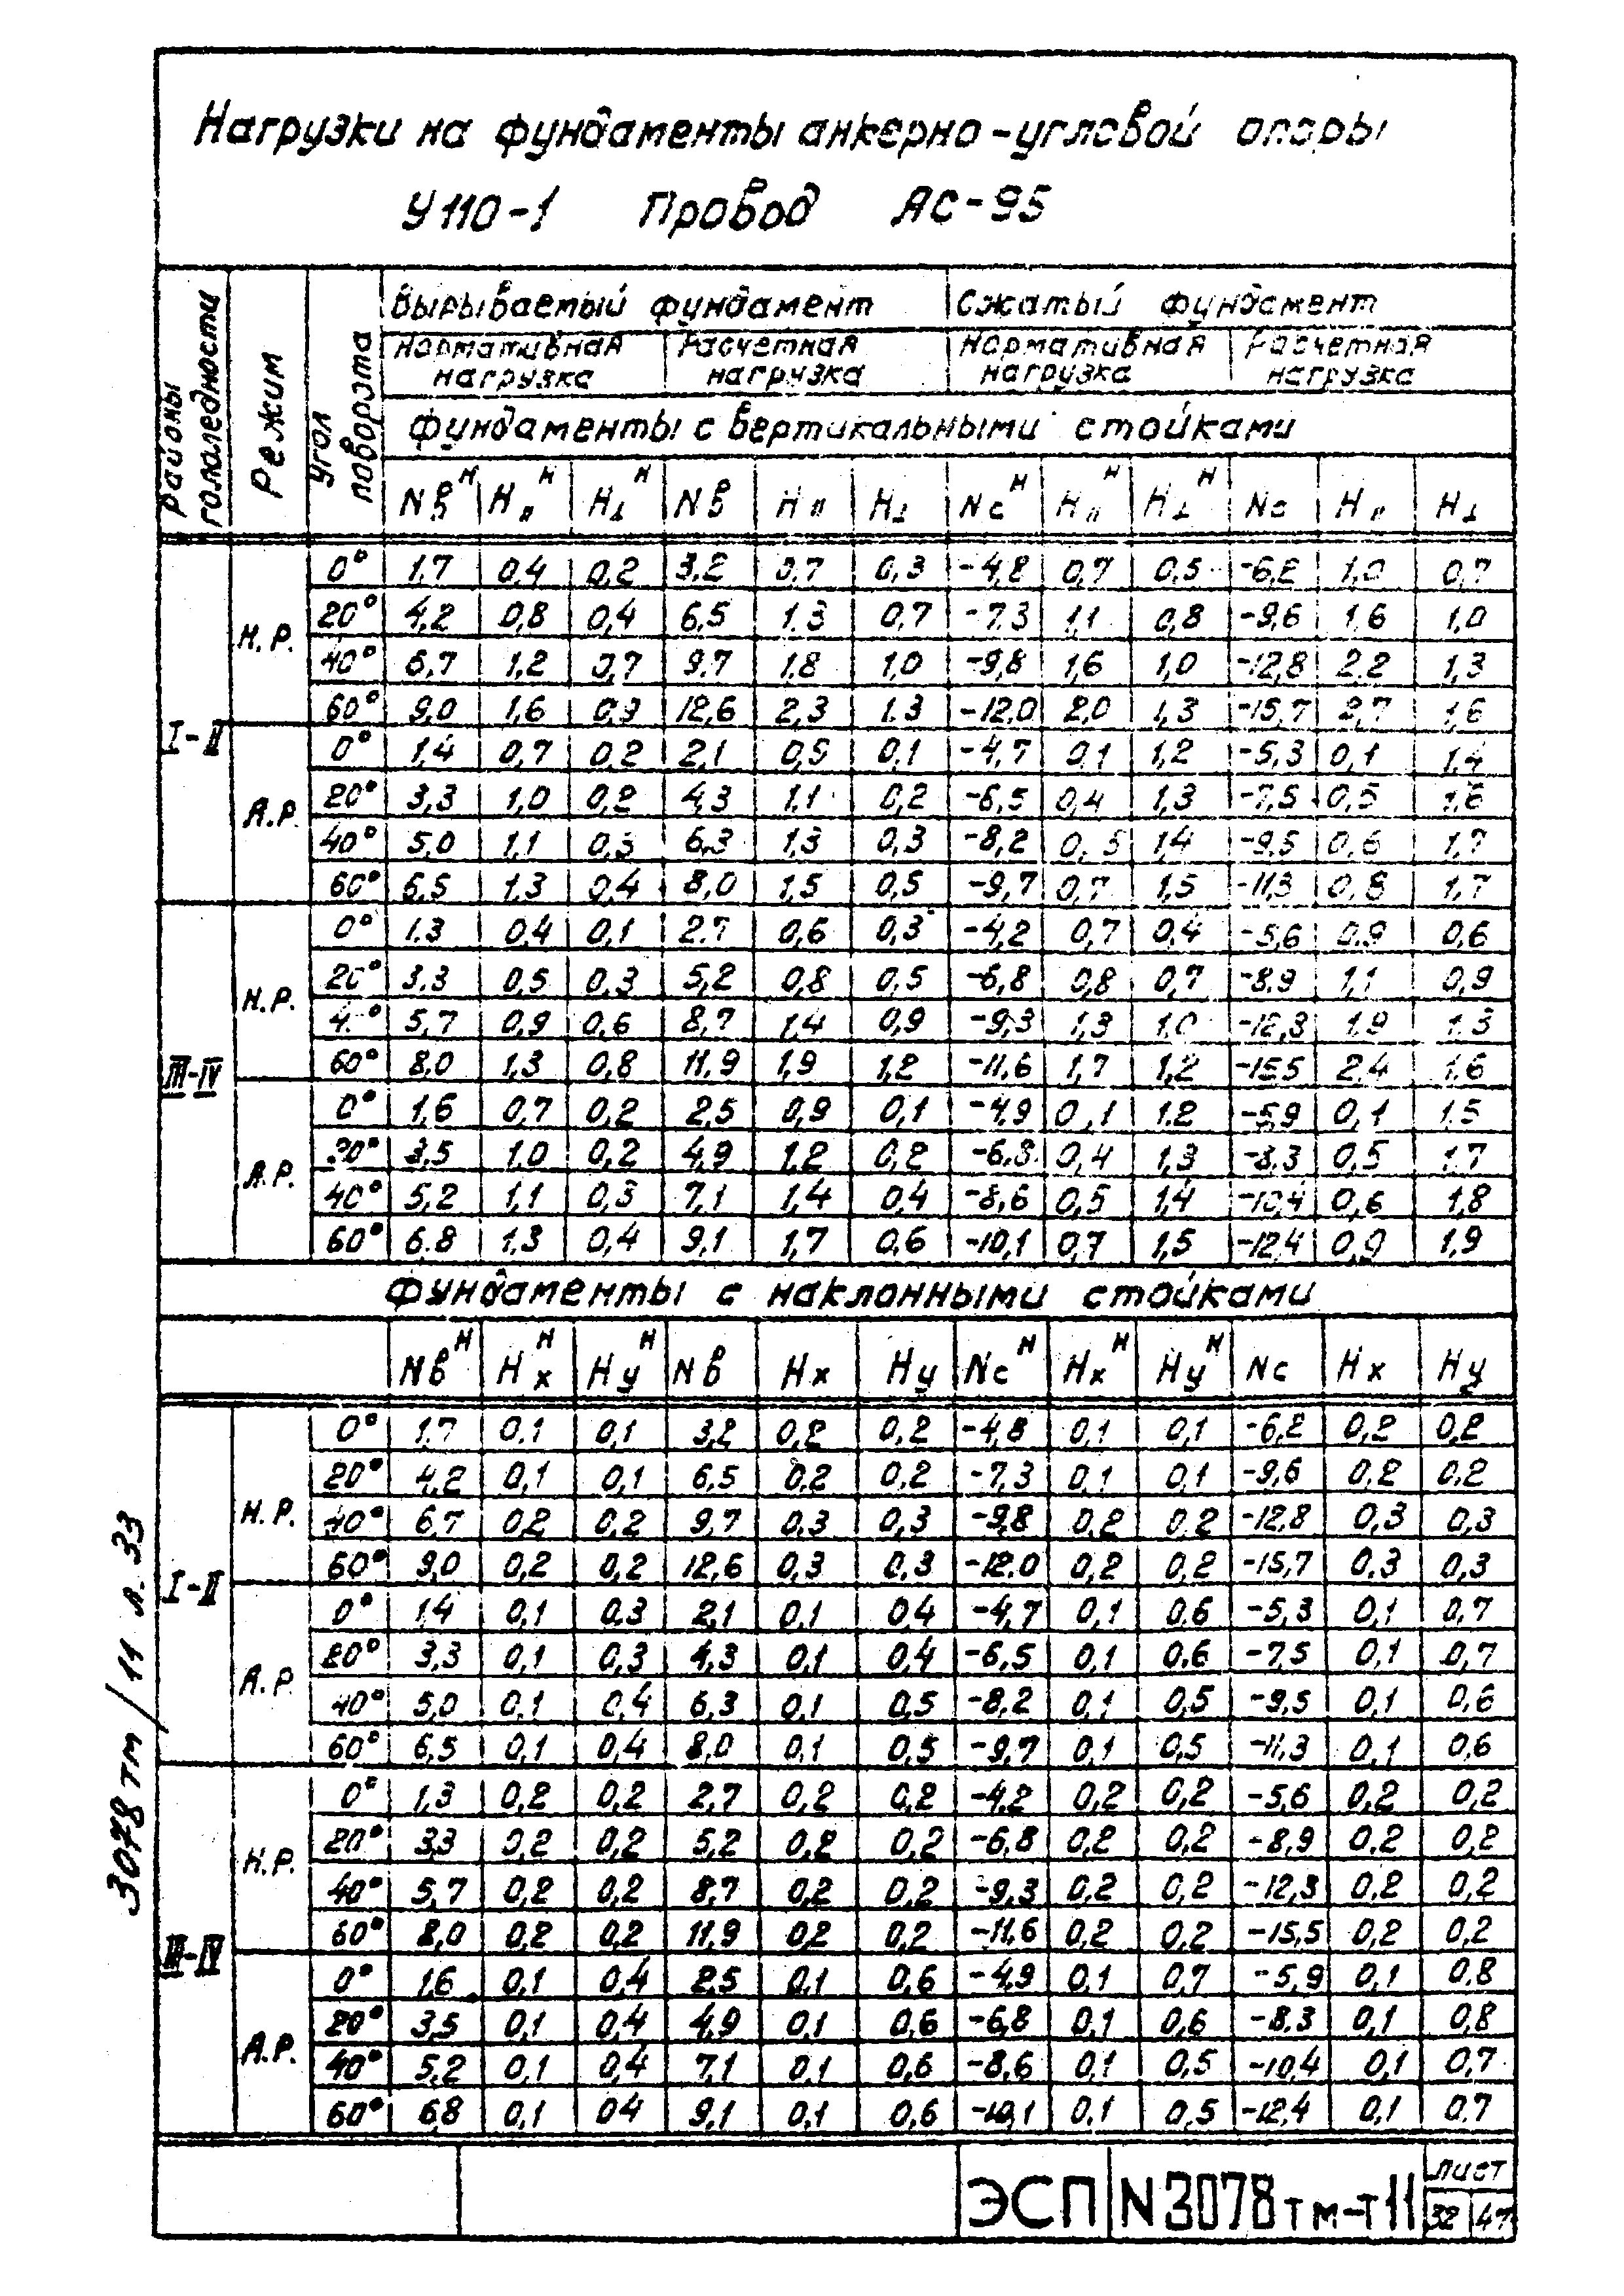 Нагрузки на фундаменты анкерно-угловой опоры
У110-1 Провод АС-95
Районы гололедности
Режим
Угол поворота
Вырываемый фундамент Сжатый фундамент
Нормативная нагрузка Расчетная нагрузка Нормативная нагрузка Расчетная нагрузка
Фундаменты с вертикальными стойками
Nвᴴ H॥ᴴ H⊥ᴴ Nв H॥ H⊥ Ncᴴ H॥ᴴ H⊥ᴴ Nc H॥ H⊥
I-II
Н.Р.
0° 1,7 0,4 0,2 3,2 0,7 0,3 -4,8 0,7 0,5 -6,2 1,0 0,7
20° 4,2 0,8 0,4 6,5 1,3 0,7 -7,3 1,1 0,8 -9,6 1,6 1,0
40° 6,7 1,2 0,7 9,7 1,8 1,0 -9,8 1,6 1,0 -12,8 2,2 1,3
60° 9,0 1,6 0,9 12,6 2,3 1,3 -12,0 2,0 1,3 -15,7 2,7 1,6
А.Р.
0° 1,4 0,7 0,2 2,1 0,1 -4,7 0,1 1,2 -5,3 0,1 1,4
20° 3,3 1,0 0,2 4,3 1,1 0,2 -6,5 0,4 1,3 -7,5 0,5 1,6
40° 5,0 1,1 0,3 6,3 1,3 0,3 -8,2 0,5 1,4 -9,5 0,6 1,7
60° 6,5 1,3 0,4 8,0 1,5 0,5 -9,7 0,7 1,5 -11,3 0,8 1,7
III-IV
Н.Р.
0° 1,3 0,4 0,1 2,7 0,6 0,3 -4,2 0,7 0,4 -5,6 0,9 0,6
20° 3,3 0,5 0,3 5,2 0,8 0,5 -6,8 0,8 0,7 -8,9 1,1 0,9
5,7 0,9 0,6 8,7 1,4 0,9 -9,3 1,3 1,0 -12,3 1,9 1,3
60° 8,0 1,3 0,8 11,9 1,9 1,2 -11,6 1,7 1,2 -15,5 2,4 1,6
А.Р.
0° 1,6 0,7 0,2 2,5 0,9 0,1 -4,9 0,1 1,2 -5,9 0,1 1,5
20° 3,5 1,0 0,2 4,9 1,2 0,2 -6,8 0,4 1,3 -8,3 0,5 1,7
40° 5,2 1,1 0,3 7,1 1,4 0,4 -8,6 0,5 1,4 -10,4 0,6 1,8
60° 6,8 1,3 0,4 9,1 1,7 0,6 -10,1 0,7 1,5 -12,4 0,9 1,9
Фундаменты с наклонными стойками
Nвᴴ Hxᴴ Hyᴴ Nв Hx Hy Ncᴴ Hxᴴ Hyᴴ Nc Hx Hy
I-II
Н.Р.
0° 1,7 0,1 0,1 3,2 0,2 0,2 -4,8 0,1 0,1 -6,2 0,2 0,2
20° 4,2 0,1 0,1 6,5 0,2 0,2 -7,3 0,1 0,1 -9,6 0,2 0,2
40° 6,7 0,2 0,2 9,7 0,3 0,3 -9,8 0,2 0,2 -12,8 0,3 0,3
60° 9,0 0,2 0,2 12,6 0,3 0,3 -12,0 0,2 0,2 -15,7 0,3 0,3
А.Р.
0° 1,4 0,1 0,3 2,1 0,1 0,4 -4,7 0,1 0,6 -5,3 0,1 0,7
20° 3,3 0,1 0,3 4,3 0,1 0,4 -6,5 0,1 0,6 -7,5 0,1 0,7
40° 5,0 0,1 0,4 6,3 0,1 0,5 -8,2 0,1 0,5 -9,5 0,1 0,6
60° 6,5 0,1 0,4 8,0 0,1 0,5 -9,7 0,1 0,5 -11,3 0,1 0,6
III-IV
Н.Р.
0° 1,3 0,2 0,2 2,7 0,2 0,2 -4,2 0,2 0,2 -5,6 0,2 0,2
20° 3,3 0,2 0,2 5,2 0,2 0,2 -6,8 0,2 0,2 -8,9 0,2 0,2
40° 5,7 0,2 0,2 8,7 0,2 0,2 -9,3 0,2 0,2 -12,3 0,2 0,2
60° 8,0 0,2 0,2 11,9 0,2 0,2 -11,6 0,2 0,2 -15,5 0,2 0,2
А.Р.
0° 1,6 0,1 0,4 2,5 0,1 0,6 -4,9 0,1 0,7 -5,9 0,1 0,8
20° 3,5 0,1 0,4 4,9 0,1 0,6 -6,8 0,1 0,6 -8,3 0,1 0,8
40° 5,2 0,1 0,4 7,1 0,1 0,6 -8,6 0,1 0,5 -10,4 0,1 0,7
60° 6,8 0,1 0,4 9,1 0,1 0,6 -10,1 0,1 0,5 -12,4 0,1 0,7
3078тм/11 л. 33
ЭСП N3078тм-т11
лист
32